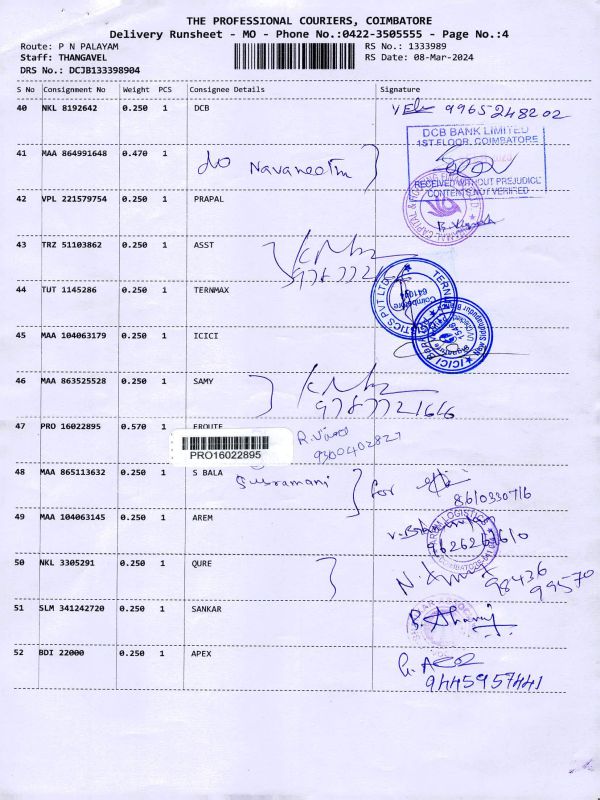 THE PROFESSIONAL COURIERS, COIMBATORE
Delivery Runsheet - MO - Phone No.:0422-3505555 - Page No.:4
Route: P N PALAYAM RS No.: 1333989
Staff: THANGAVEL RS Date: 08-Mar-2024
DRS No.: DCJB133398904
S No Consignment No Weight PCS Consignee Details Signature
40 NKL 8192642 0.250 1 DCB 9965248202
DCB BANK LIMITED
1ST FLOOR, COIMBATORE
41 MAA 864991648 0.470 1 do Navaneeth
RECEIVED WITHOUT PREJUDICE
CONTENTS NOT VERIFIED
42 VPL 221579754 0.250 1 PRAPAL
43 TRZ 51103862 0.250 1 ASST
44 TUT 1145286 0.250 1 TERNMAX
45 MAA 104063179 0.250 1 ICICI
46 MAA 863525528 0.250 1 SAMY
9787721616
47 PRO 16022895 0.570 1 EROUTE
PRO16022895
9300402827
48 MAA 865113632 0.250 1 S BALA
Subramani for
8610330716
49 MAA 104063145 0.250 1 AREM
50 NKL 3305291 0.250 1 QURE
98436
99570
51 SLM 341242720 0.250 1 SANKAR
52 BDI 22000 0.250 1 APEX
9445957441